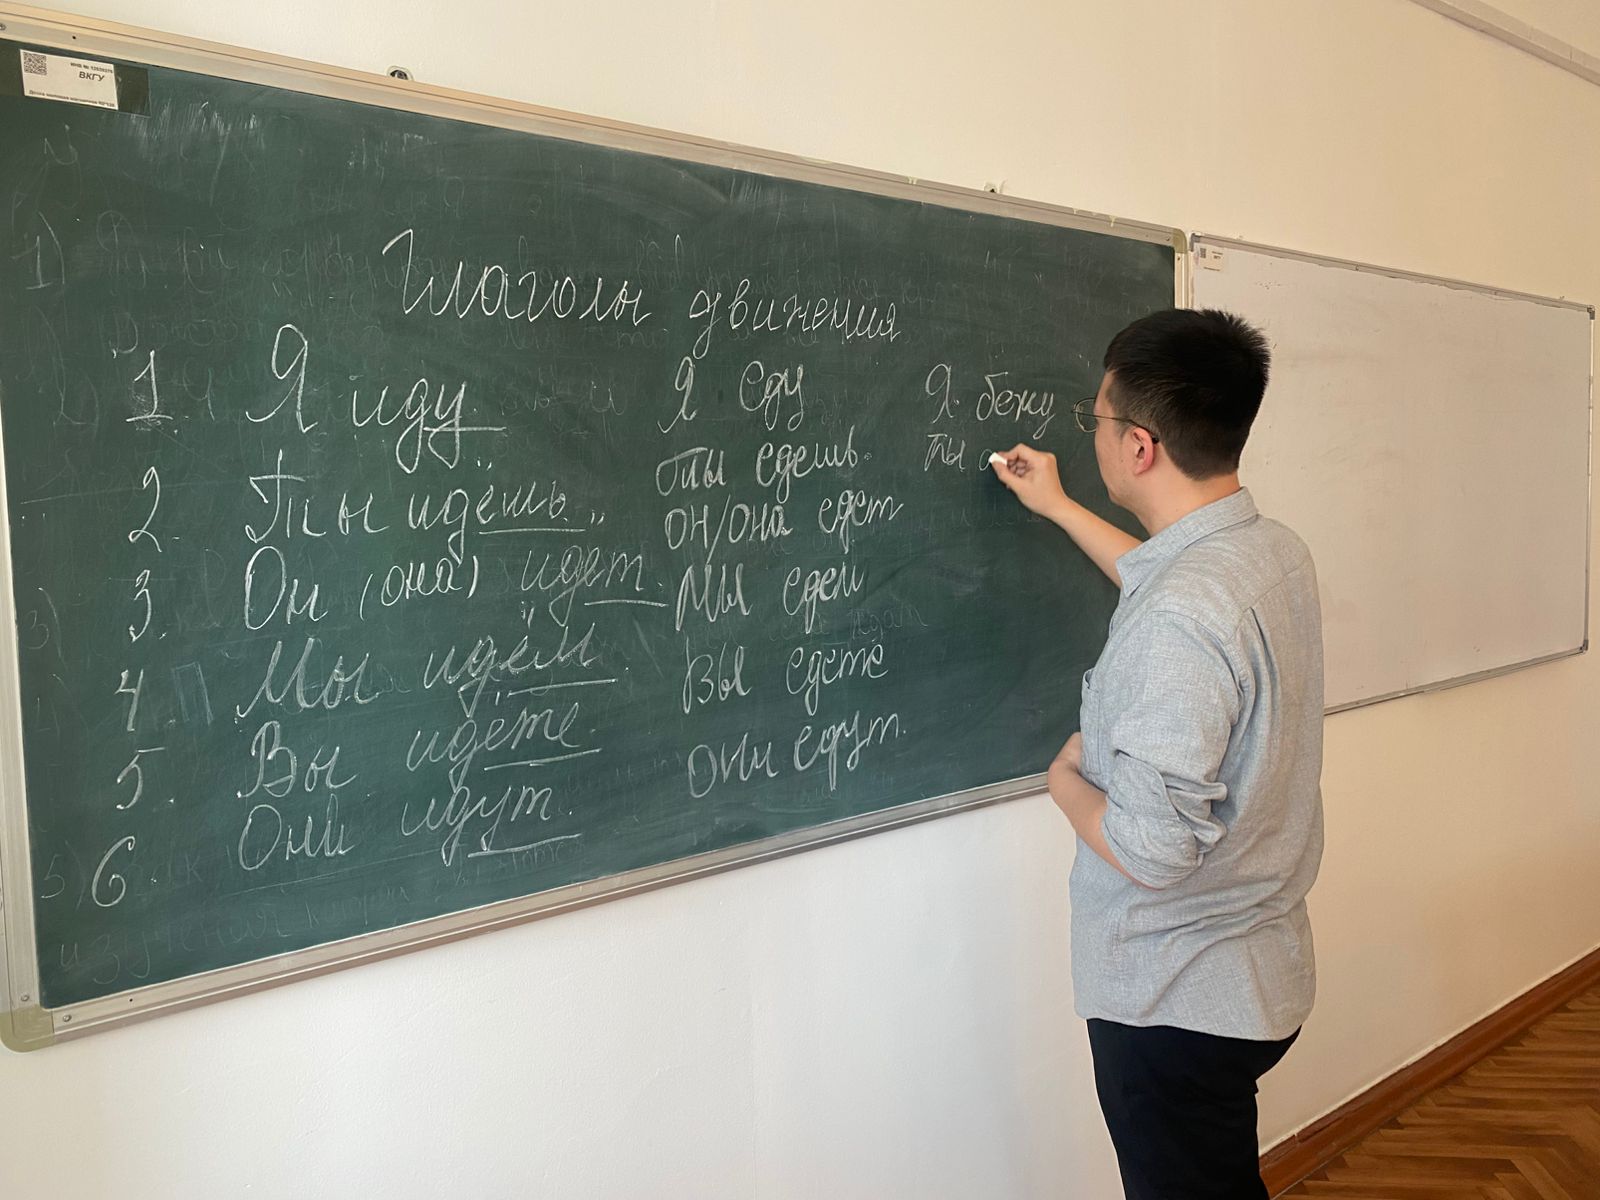 ИНВ №
ВКГУ
Глаголы движения
1. Я иду. Я еду Я бегу
2. Ты идёшь. Ты едешь. Ты
3. Он (она) идёт. он/она едет
4. Мы идём. Мы едем
5. Вы идёте. Вы едете
6 Они идут. Они едут.
ВКГУ